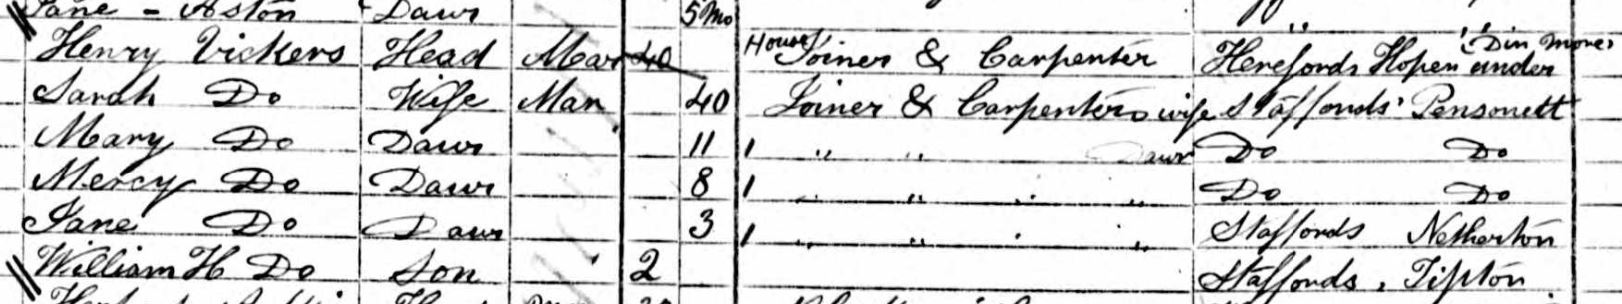 Jane - Aston Dawr 5 Mo "
Henry Vickers Head Mar 40 House Joiner & Carpenter Herefords Hopen under Din more
Sarah Do Wife Mar 40 Joiner & Carpenters wife Staffords Pensnett
Mary Do Dawr 11 " " Dawr Do Do
Mercy Do Dawr 8 " " " " Do Do
Jane Do Dawr 3 " " " " Staffords Netherton
William H Do Son 2 Staffords, Tipton